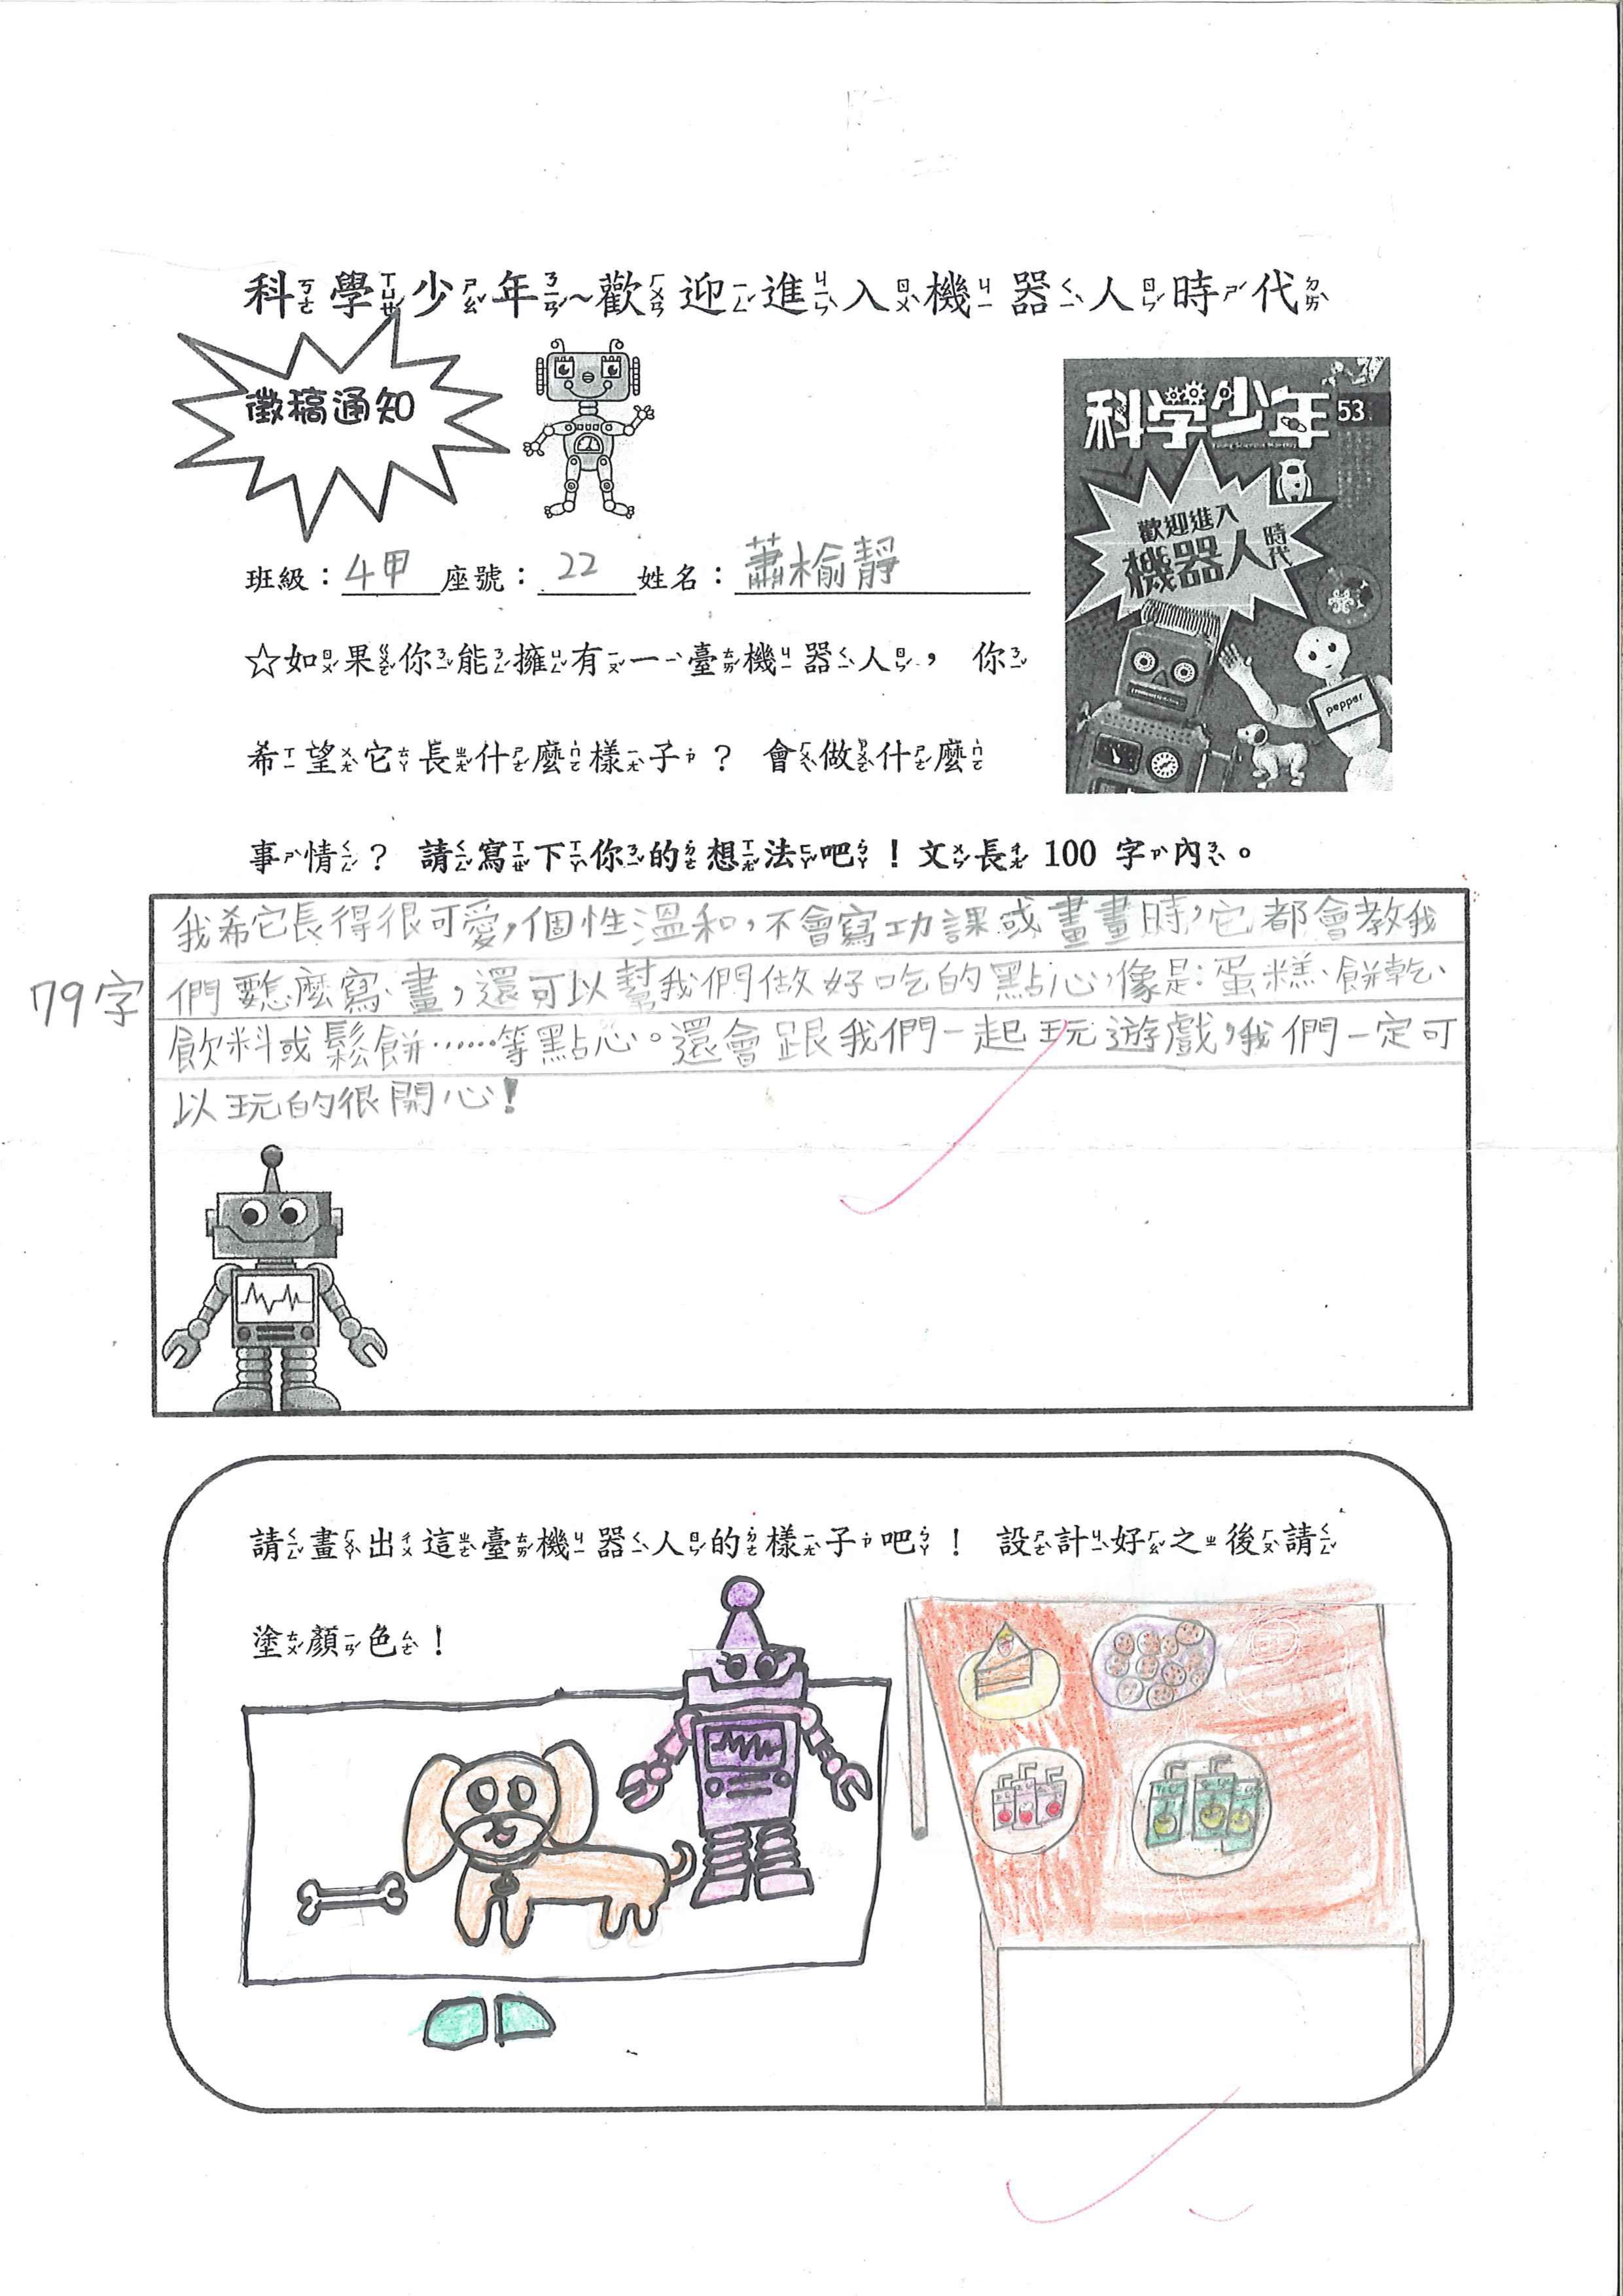 科學少年~歡迎進入機器人時代
徵稿通知
科学少年 53
歡迎進入
機器人時代
pepper
班級：4甲座號：22 姓名：蕭榆靜
☆如果你能擁有一臺機器人， 你
希望它長什麼樣子？ 會做什麼
事情？ 請寫下你的想法吧！文長 100 字內。
我希它長得很可愛,個性溫和,不會寫功課或畫畫時,它都會教我
79字
們怎麼寫、畫,還可以幫我們做好吃的點心,像是:蛋糕、餅乾、
飲料或鬆餅……等點心。還會跟我們一起玩遊戲,我們一定可
以玩的很開心!
請畫出這臺機器人的樣子吧！ 設計好之後請
塗顏色！